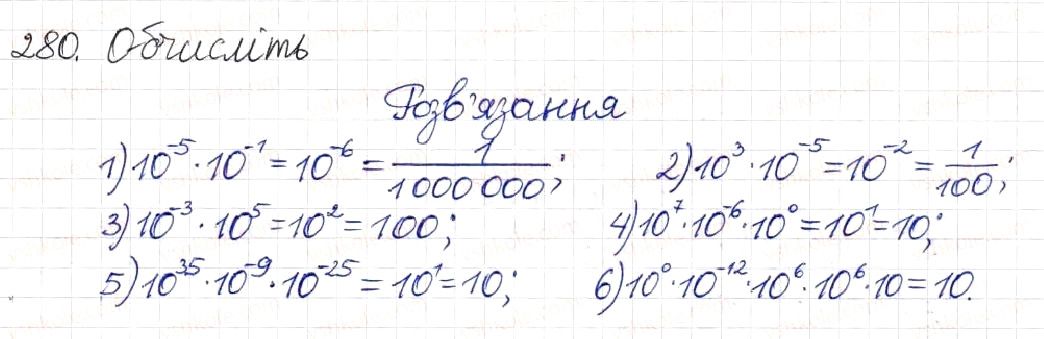 280. Обчисліть
Розв'язання
1) 10⁻⁵ · 10⁻¹ = 10⁻⁶ = 1/1000 000; 2) 10³ · 10⁻⁵ = 10⁻² = 1/100;
3) 10⁻³ · 10⁵ = 10² = 100; 4) 10⁷ · 10⁻⁶ · 10⁰ = 10¹ = 10;
5) 10³⁵ · 10⁻⁹ · 10⁻²⁵ = 10¹ = 10; 6) 10⁰ · 10⁻¹² · 10⁶ · 10⁶ · 10 = 10.